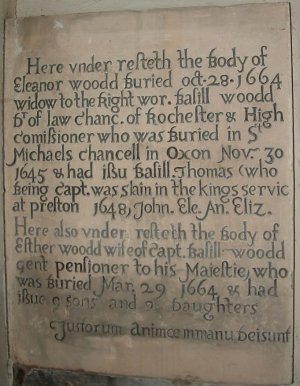 Here vnder resteth the body of
Eleanor woodd buried oct·28·1664
widow to the Right wor. basill woodd
Dr of law chanc. of Rochester & High
comissioner who was buried in St
Michaels chancell in Oxon Nov. 30
1645 & had issu basill, Thomas (who
being capt. was slain in the kings servic
at preston 1648, John. Ele. An. Eliz.
Here also vnder resteth the body of
Esther woodd wife of capt. basill woodd
gent pensioner to his Maiestie, who
was buried Mar. 29 1664 & had
issue 9 sons and 2 daughters
Justorum animœ in manu dei sunt